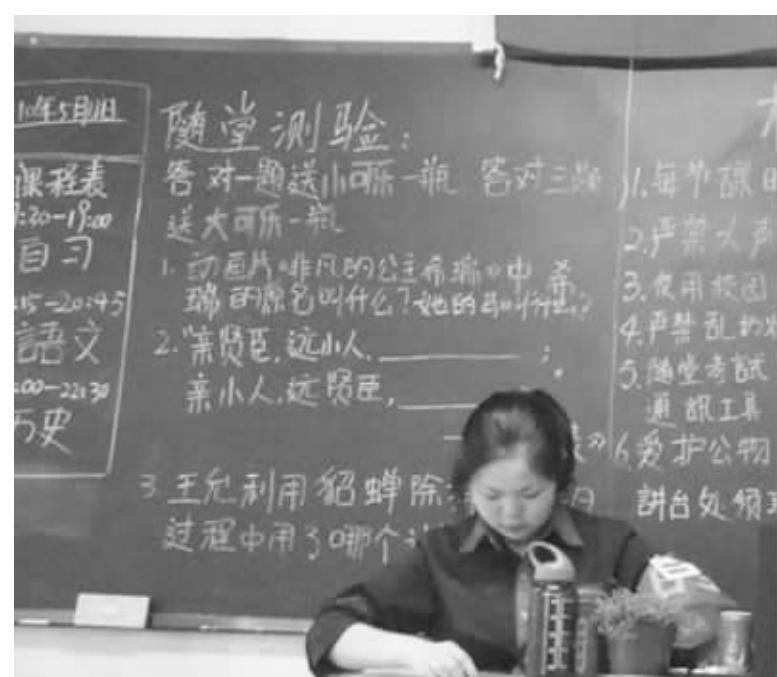 10年5月11日
课程表
:30-19:00
自习
:15-20:45
語文
:00-22:30
历史
随堂测验：
答对一题送小可乐一瓶 答对三题
送大可乐一瓶
1. 动画片《非凡的公主希瑞》中 希
瑞的原名叫什么？她的马叫什么？
2. “亲贤臣，远小人，________；
亲小人，远贤臣，____
3. 王允利用貂蝉除
过程中用了哪个
1. 每节課
2. 严禁大声
3. 使用校园
4. 严禁乱扔
5. 随堂考試
通訊工具
6. 爱护公物
講台处领